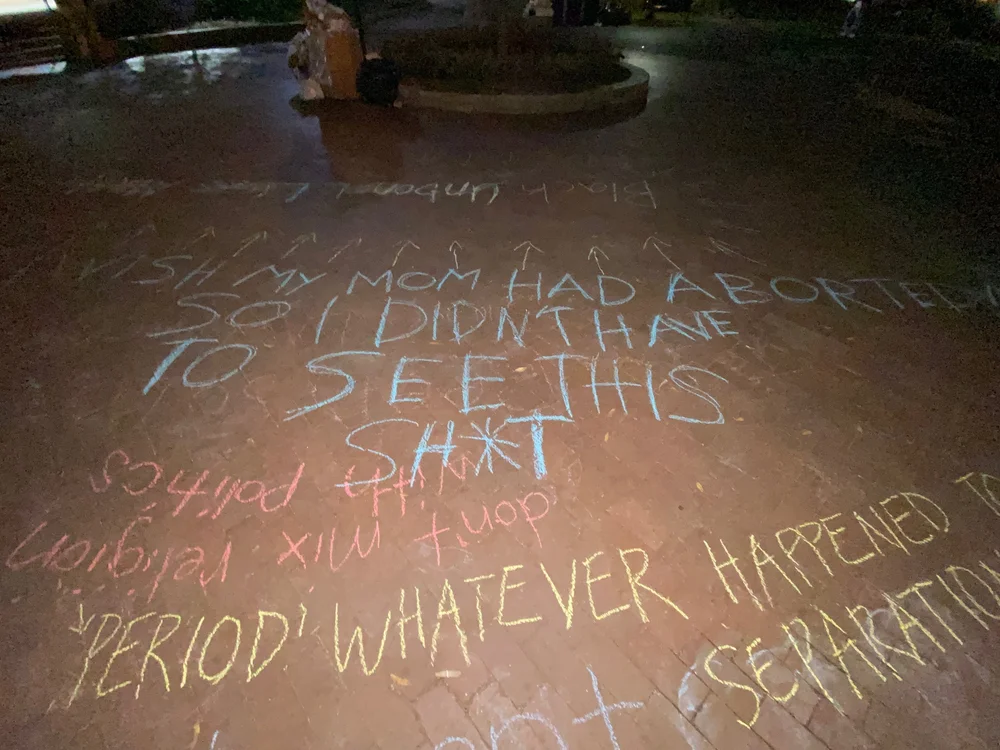 Black Unborn
WISH MY MOM HAD ABORTED
SO I DIDN'T HAVE
TO SEE THIS
SH*T
don't mix religion
with politics
'PERIOD' WHATEVER HAPPENED TO
SEPARATION